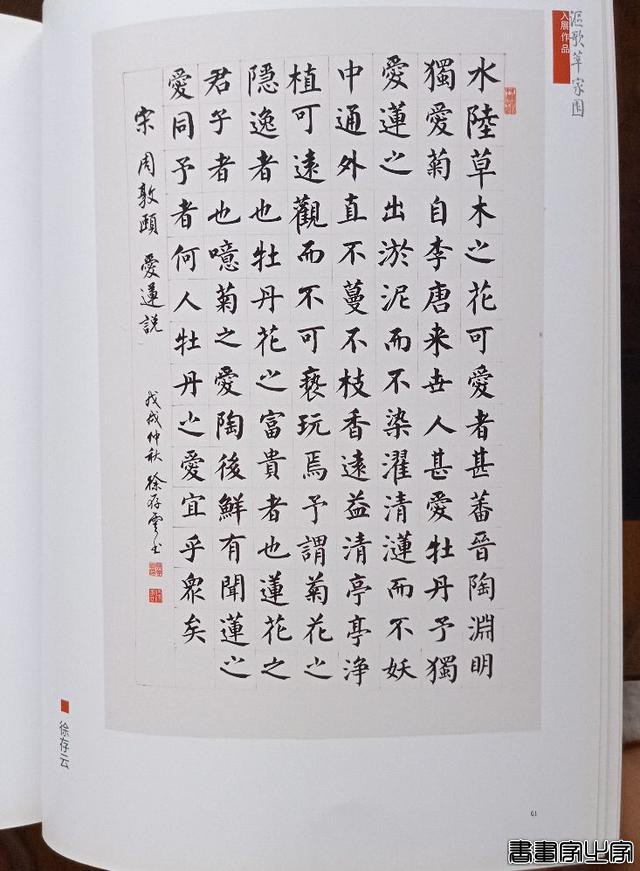 讴歌莘家园
入展作品
水陸草木之花可愛者甚蕃晉陶淵明
獨愛菊自李唐来世人甚愛牡丹予獨
愛蓮之出淤泥而不染濯清漣而不妖
中通外直不蔓不枝香遠益清亭亭浄
植可遠觀而不可褻玩焉予謂菊花之
隱逸者也牡丹花之富貴者也蓮花之
君子者也噫菊之愛陶後鮮有聞蓮之
愛同予者何人牡丹之愛宜乎衆矣
宋周敦頤愛蓮説
戊戌仲秋徐存雲书
徐存云
61